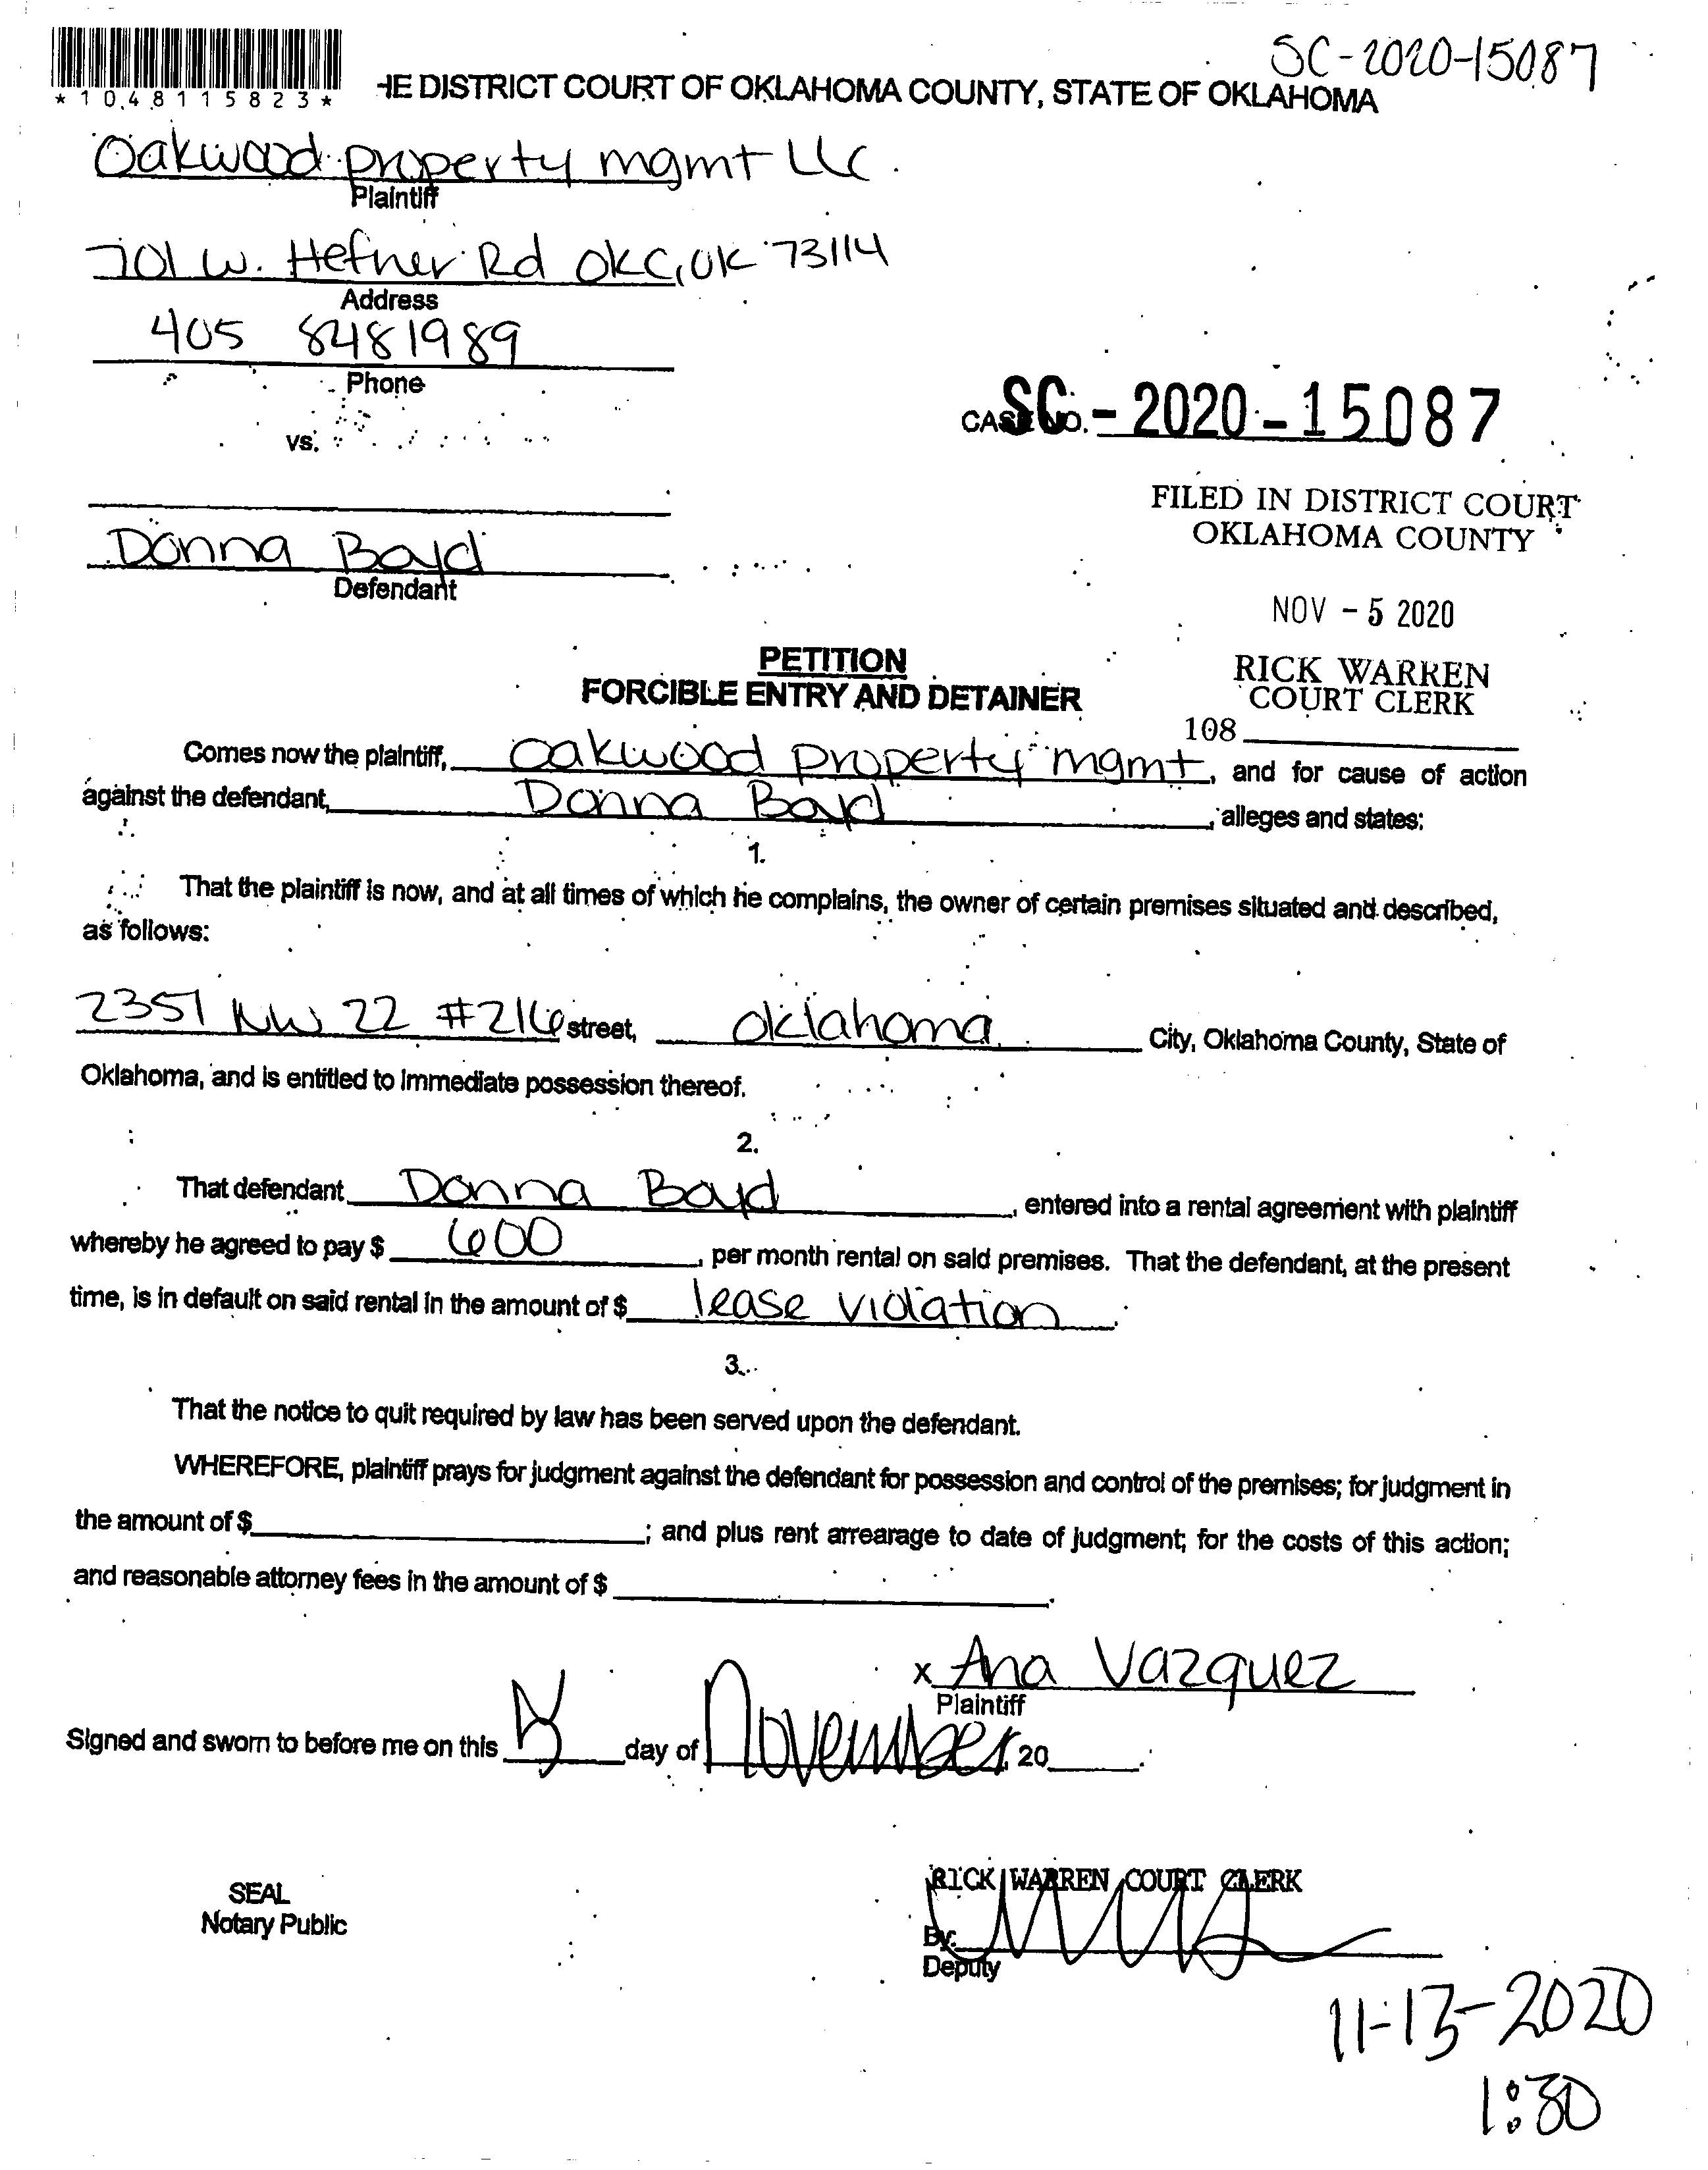 SC-2020-15087
*1048115823*
HE DISTRICT COURT OF OKLAHOMA COUNTY, STATE OF OKLAHOMA
Oakwood property mgmt LLC
Plaintiff
701 W. Hefner Rd OKC, OK 73114
Address
405 8481989
Phone
vs.
CASE NO. SC - 2020 - 15087
FILED IN DISTRICT COURT
OKLAHOMA COUNTY
Donna Boyd
Defendant
NOV - 5 2020
PETITION
FORCIBLE ENTRY AND DETAINER
RICK WARREN
COURT CLERK
108
Comes now the plaintiff, Oakwood property mgmt, and for cause of action
against the defendant, Donna Boyd, alleges and states:
1.
That the plaintiff is now, and at all times of which he complains, the owner of certain premises situated and described,
as follows:
2351 NW 22 #216 street, oklahoma City, Oklahoma County, State of
Oklahoma, and is entitled to immediate possession thereof.
2.
That defendant Donna Boyd, entered into a rental agreement with plaintiff
whereby he agreed to pay $ 600, per month rental on said premises. That the defendant, at the present
time, is in default on said rental in the amount of $ lease violation.
3.
That the notice to quit required by law has been served upon the defendant.
WHEREFORE, plaintiff prays for judgment against the defendant for possession and control of the premises; for judgment in
the amount of $ ; and plus rent arrearage to date of judgment; for the costs of this action;
and reasonable attorney fees in the amount of $ .
x Ana Vazquez
Plaintiff
Signed and sworn to before me on this 5 day of November, 20 .
RICK WARREN COURT CLERK
SEAL
Notary Public
By:
Deputy
11-13-2020
1:30